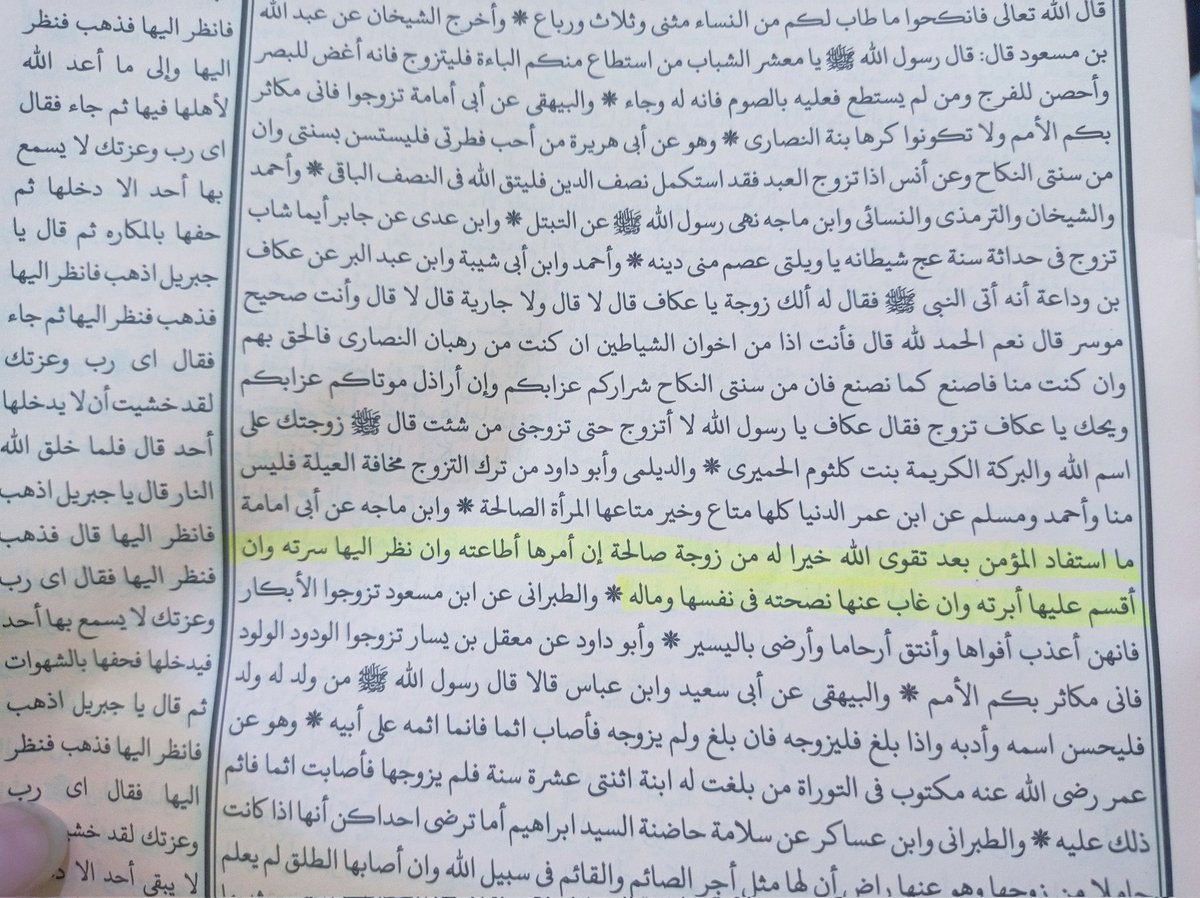 قال الله تعالى فانكحوا ما طاب لكم من النساء مثنى وثلاث ورباع ❋ وأخرج الشيخان عن عبد الله
بن مسعود قال: قال رسول الله ﷺ يا معشر الشباب من استطاع منكم الباءة فليتزوج فانه أغض للبصر
وأحصن للفرج ومن لم يستطع فعليه بالصوم فانه له وجاء ❋ والبيهقى عن أبى أمامة تزوجوا فانى مكاثر
بكم الأمم ولا تكونوا كرهبانية النصارى ❋ وهو عن أبى هريرة من أحب فطرتى فليستسن بسنتى وان
من سنتى النكاح وعن أنس اذا تزوج العبد فقد استكمل نصف الدين فليتق الله فى النصف الباقى ❋ وأحمد
والشيخان والترمذى والنسائى وابن ماجه نهى رسول الله ﷺ عن التبتل ❋ وابن عدى عن جابر أيما شاب
تزوج فى حداثة سنة عج شيطانه يا ويلتى عصم منى دينه ❋ وأحمد وابن أبى شيبة وابن عبد البر عن عكاف
بن وداعة أنه أتى النبى ﷺ فقال له ألك زوجة يا عكاف قال لا قال ولا جارية قال لا قال وأنت صحيح
موسر قال نعم الحمد لله قال فأنت اذا من اخوان الشياطين ان كنت من رهبان النصارى فالحق بهم
وان كنت منا فاصنع كما نصنع فان من سنتى النكاح شراركم عزابكم وإن أراذل موتاكم عزابكم
ويحك يا عكاف تزوج فقال عكاف يا رسول الله لا أتزوج حتى تزوجنى من شئت قال ﷺ زوجتك على
اسم الله والبركة الكريمة بنت كلثوم الحميرى ❋ والديلمى وأبو داود من ترك التزوج مخافة العيلة فليس
منا وأحمد ومسلم عن ابن عمر الدنيا كلها متاع وخير متاعها المرأة الصالحة ❋ وابن ماجه عن أبى امامة
ما استفاد المؤمن بعد تقوى الله خيرا له من زوجة صالحة إن أمرها أطاعته وان نظر اليها سرته وان
أقسم عليها أبرته وان غاب عنها نصحته فى نفسها وماله ❋ والطبرانى عن ابن مسعود تزوجوا الأبكار
فانهن أعذب أفواها وأنتق أرحاما وأرضى باليسير ❋ وأبو داود عن معقل بن يسار تزوجوا الودود الولود
فانى مكاثر بكم الأمم ❋ والبيهقى عن أبى سعيد وابن عباس قالا قال رسول الله ﷺ من ولد له ولد
فليحسن اسمه وأدبه واذا بلغ فليزوجه فان بلغ ولم يزوجه فأصاب اثما فانما اثمه على أبيه ❋ وهو عن
عمر رضى الله عنه مكتوب فى التوراة من بلغت له ابنة اثنتى عشرة سنة فلم يزوجها فأصابت اثما فاثم
ذلك عليه ❋ والطبرانى وابن عساكر عن سلامة حاضنة السيد ابراهيم أما ترضى احداكن أنها اذا كانت
حاملا من زوجها وهو عنها راض أن لها مثل أجر الصائم والقائم فى سبيل الله وان أصابها الطلق لم يعلم
فانظر اليها فذهب فنظر
اليها وإلى ما أعد الله
لأهلها فيها ثم جاء فقال
اى رب وعزتك لا يسمع
بها أحد الا دخلها ثم
حفها بالمكاره ثم قال يا
جبريل اذهب فانظر اليها
فذهب فنظر اليها ثم جاء
فقال اى رب وعزتك
لقد خشيت أن لا يدخلها
أحد قال فلما خلق الله
النار قال يا جبريل اذهب
فانظر اليها قال فذهب
فنظر اليها فقال اى رب
وعزتك لا يسمع بها أحد
فيدخلها فحفها بالشهوات
ثم قال يا جبريل اذهب
فانظر اليها فذهب فنظر
اليها فقال اى رب
وعزتك لقد
لا يبقى أحد الا